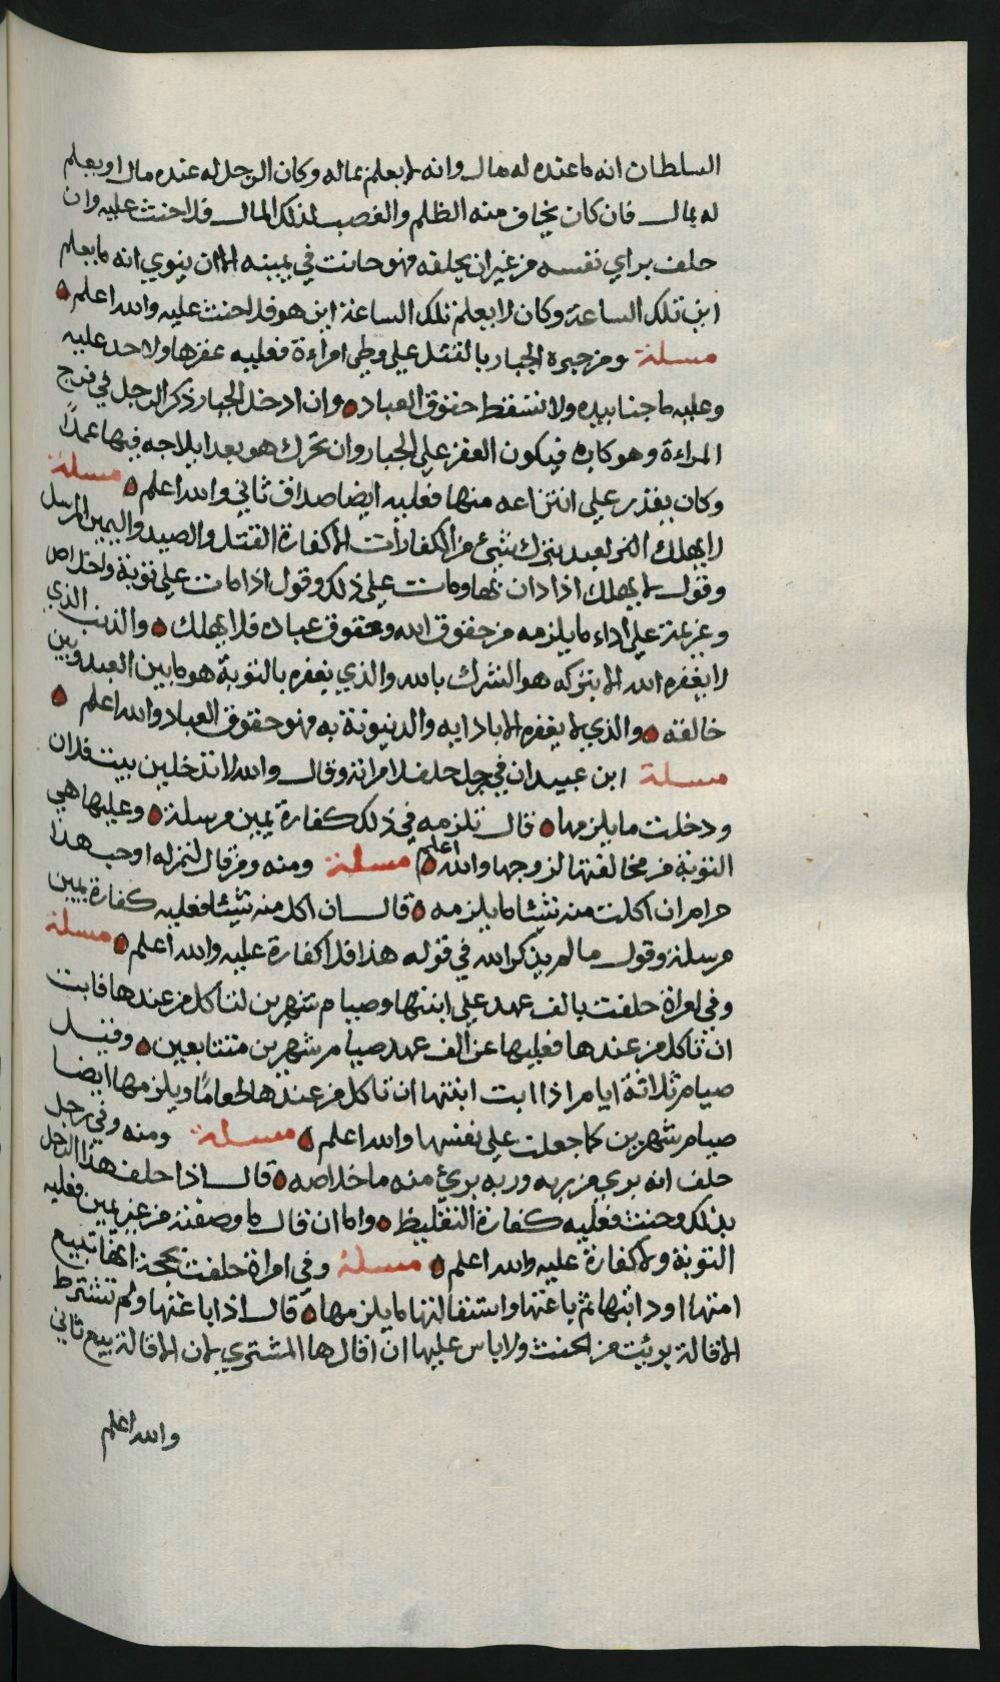 السلطان انه ما عنده له مال وانه لا يعلم بماله وكان الرجل له عنده مال او يعلم
له بمال فان كان يخاف منه الظلم والغصب لذلك المال فلا حنث عليه وان
حلف براي نفسه من غير ان يحلفه فهو حانث في يمينه الا ان ينوي انه ما يعلم
اين تلك الساعة وكان لا يعلم تلك الساعة اين هو فلا حنث عليه والله اعلم
مسلة ومن جبره الجبار بالقتل على وطي امراءة فعليه عقرها ولا حد عليه
وعليه ما جنا بيده ولا تسقط حقوق العباد وان ادخل الجبار ذكر الرجل في فرج
المراءة وهو كاره فيكون العقر على الجبار وان تحرك هو بعد ايلاجه فيها عمدًا
وكان يقدر على انتزاعه منها فعليه ايضا صداق ثاني والله اعلم مسلة
لا يهلك العبد بترك شئ من الكفارات الا كفارة القتل والصيد واليمين المرسل
وقول لا يهلك اذا دان بها ومات على ذلك وقول اذا مات على توبة واخلاص
وعزيمة على اداء ما يلزمه من حقوق الله وحقوق عباده فلا يهلك والذنب الذي
لا يغفره الله الا بتركه هو الشرك بالله والذي يغفره بالتوبة هو ما بين العبد وبين
خالقه والذي لا يغفره الا بادايه والدينونة به فهو حقوق العباد والله اعلم
مسلة ابن عبيدان في رجل حلف لامراته وقال والله لا تدخلين بيت فلان
ودخلت ما يلزمها قال تلزمه في ذلك كفارة يمين مرسلة وعليها هي
التوبة من مخالفتها لزوجها والله اعلم مسلة ومنه ومن قال لنمزله اوحب هذا
حرام ان اكلت منه شيئا ما يلزمه قال ان اكل منه شيئا فعليه كفارة يمين
مرسلة وقول ما لم يذكر الله في قوله هذا فلا كفارة عليه والله اعلم مسلة
وفي امراة حلفت بالف عهد على ابنتها وصيام شهرين لتاكل من عندها فابت
ان تاكل من عندها فعليها عن الف عهد صيام شهرين متتابعين وقيل
صيام ثلاثة ايام اذا ابت ابنتها ان تاكل من عندها طعامًا ويلزمها ايضا
صيام شهرين كما جعلت على نفسها والله اعلم مسلة ومنه وفي رجل
حلف انه بري من ربه وربه بريء منه ما خلاصه قال اذا حلف هذا الرجل
بذلك وحنث فعليه كفارة التغليظ واما ان قال ما وصفته من غير يمين فعليه
التوبة ولا كفارة عليه والله اعلم مسلة وفي امراة حلفت بحجة انها تبيع
امتها او دابتها ثم باعتها واستقالتها ما يلزمها قال اذا باعتها ولم تشترط
الاقالة بوئيت من الحنث ولا باس عليها ان اقالها المشتري لان الاقالة بيع ثاني
والله اعلم